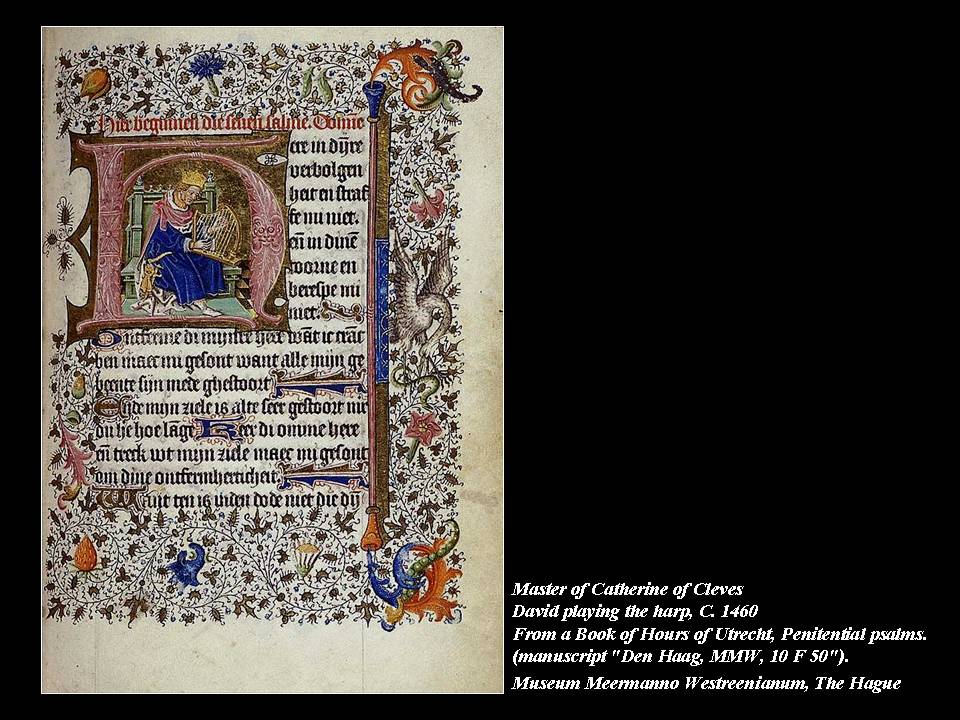 Hier beginnen die seuen salme. Domie
Here in dijre
verbolgen
heit en straf
fe mi niet.
en̄ in dinē
toorne en
berespe mi
niet.
Ontferme di mijnre here wāt ic
ben maec mi gesont want alle mijn ge
beente sijn mede ghestoort
Ende mijn ziele is alte seer gestoort
du he hoe lāge Keer di omme here
en̄ treck wt mijn ziele maec mi gesont
om dine ontfermherticheit.
Want ten is inden dode niet die dij
Master of Catherine of Cleves
David playing the harp, C. 1460
From a Book of Hours of Utrecht, Penitential psalms.
(manuscript "Den Haag, MMW, 10 F 50").
Museum Meermanno Westreenianum, The Hague